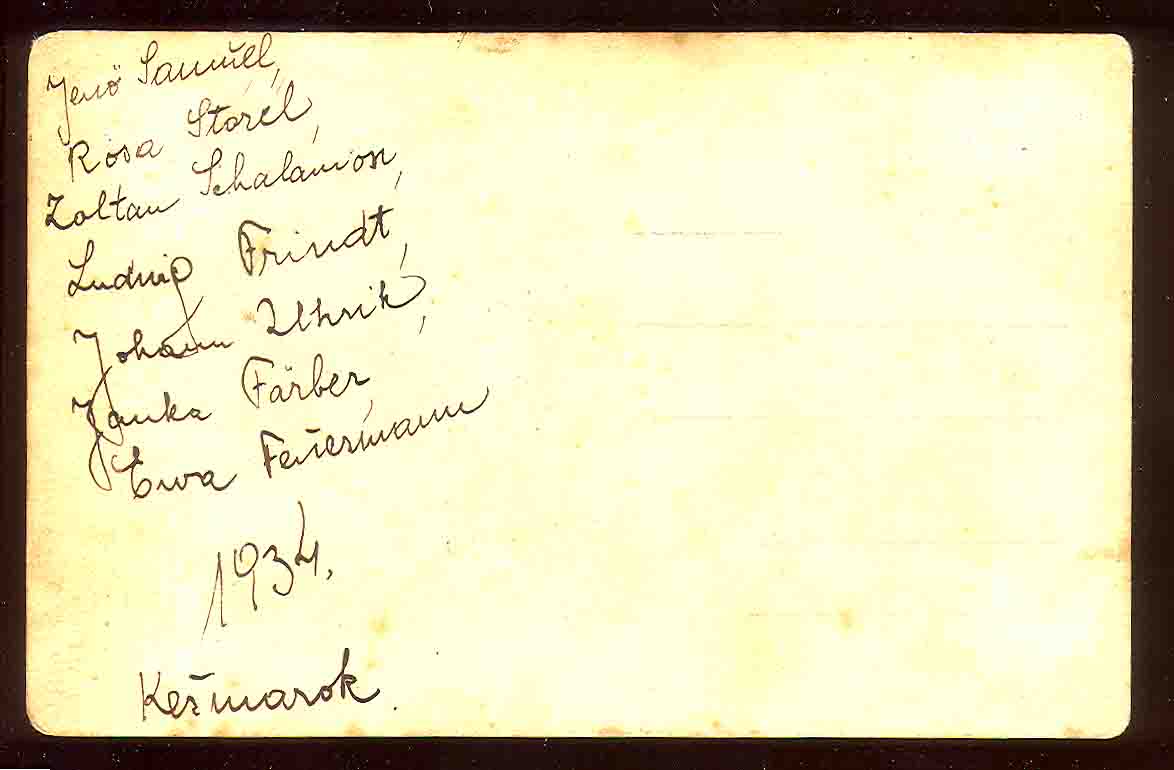 Jenö Samuel,
Rósa Storél,
Zoltan Schalamon,
Ludwig Frindt,
Johann Uhrik,
Janka Färber,
Ewa Feuermann
1934.
Kežmarok.